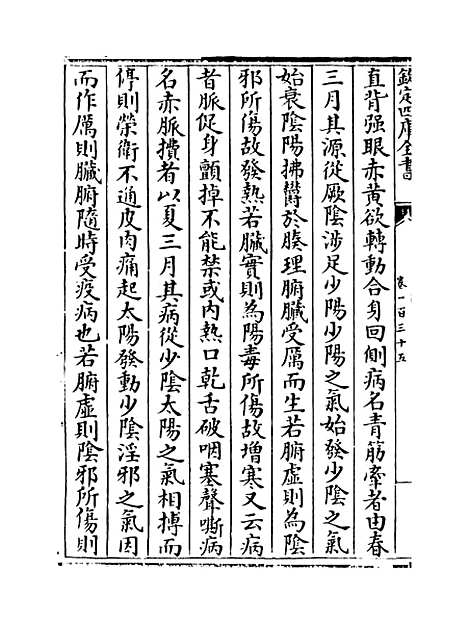 欽定四庫全書
卷一百三十五
直背强眼赤黄欲轉動合身回側病名青筋牽者由春
三月其源從厥陰涉足少陽少陽之氣始發少陰之氣
始衰陰陽拂欝於腠理腑臟受厲而生若腑虚則為陰
邪所傷故發熱若臟實則為陽毒所傷故増寒又云病
者脈促身顫掉不能禁或内熱口乾舌破咽塞聲嘶病
名赤脈攢者以夏三月其病從少陰太陽之氣相搏而
停則榮衛不通皮肉痛起太陽發動少陰淫邪之氣因
而作厲則臟腑隨時受疫病也若腑虚則陰邪所傷則